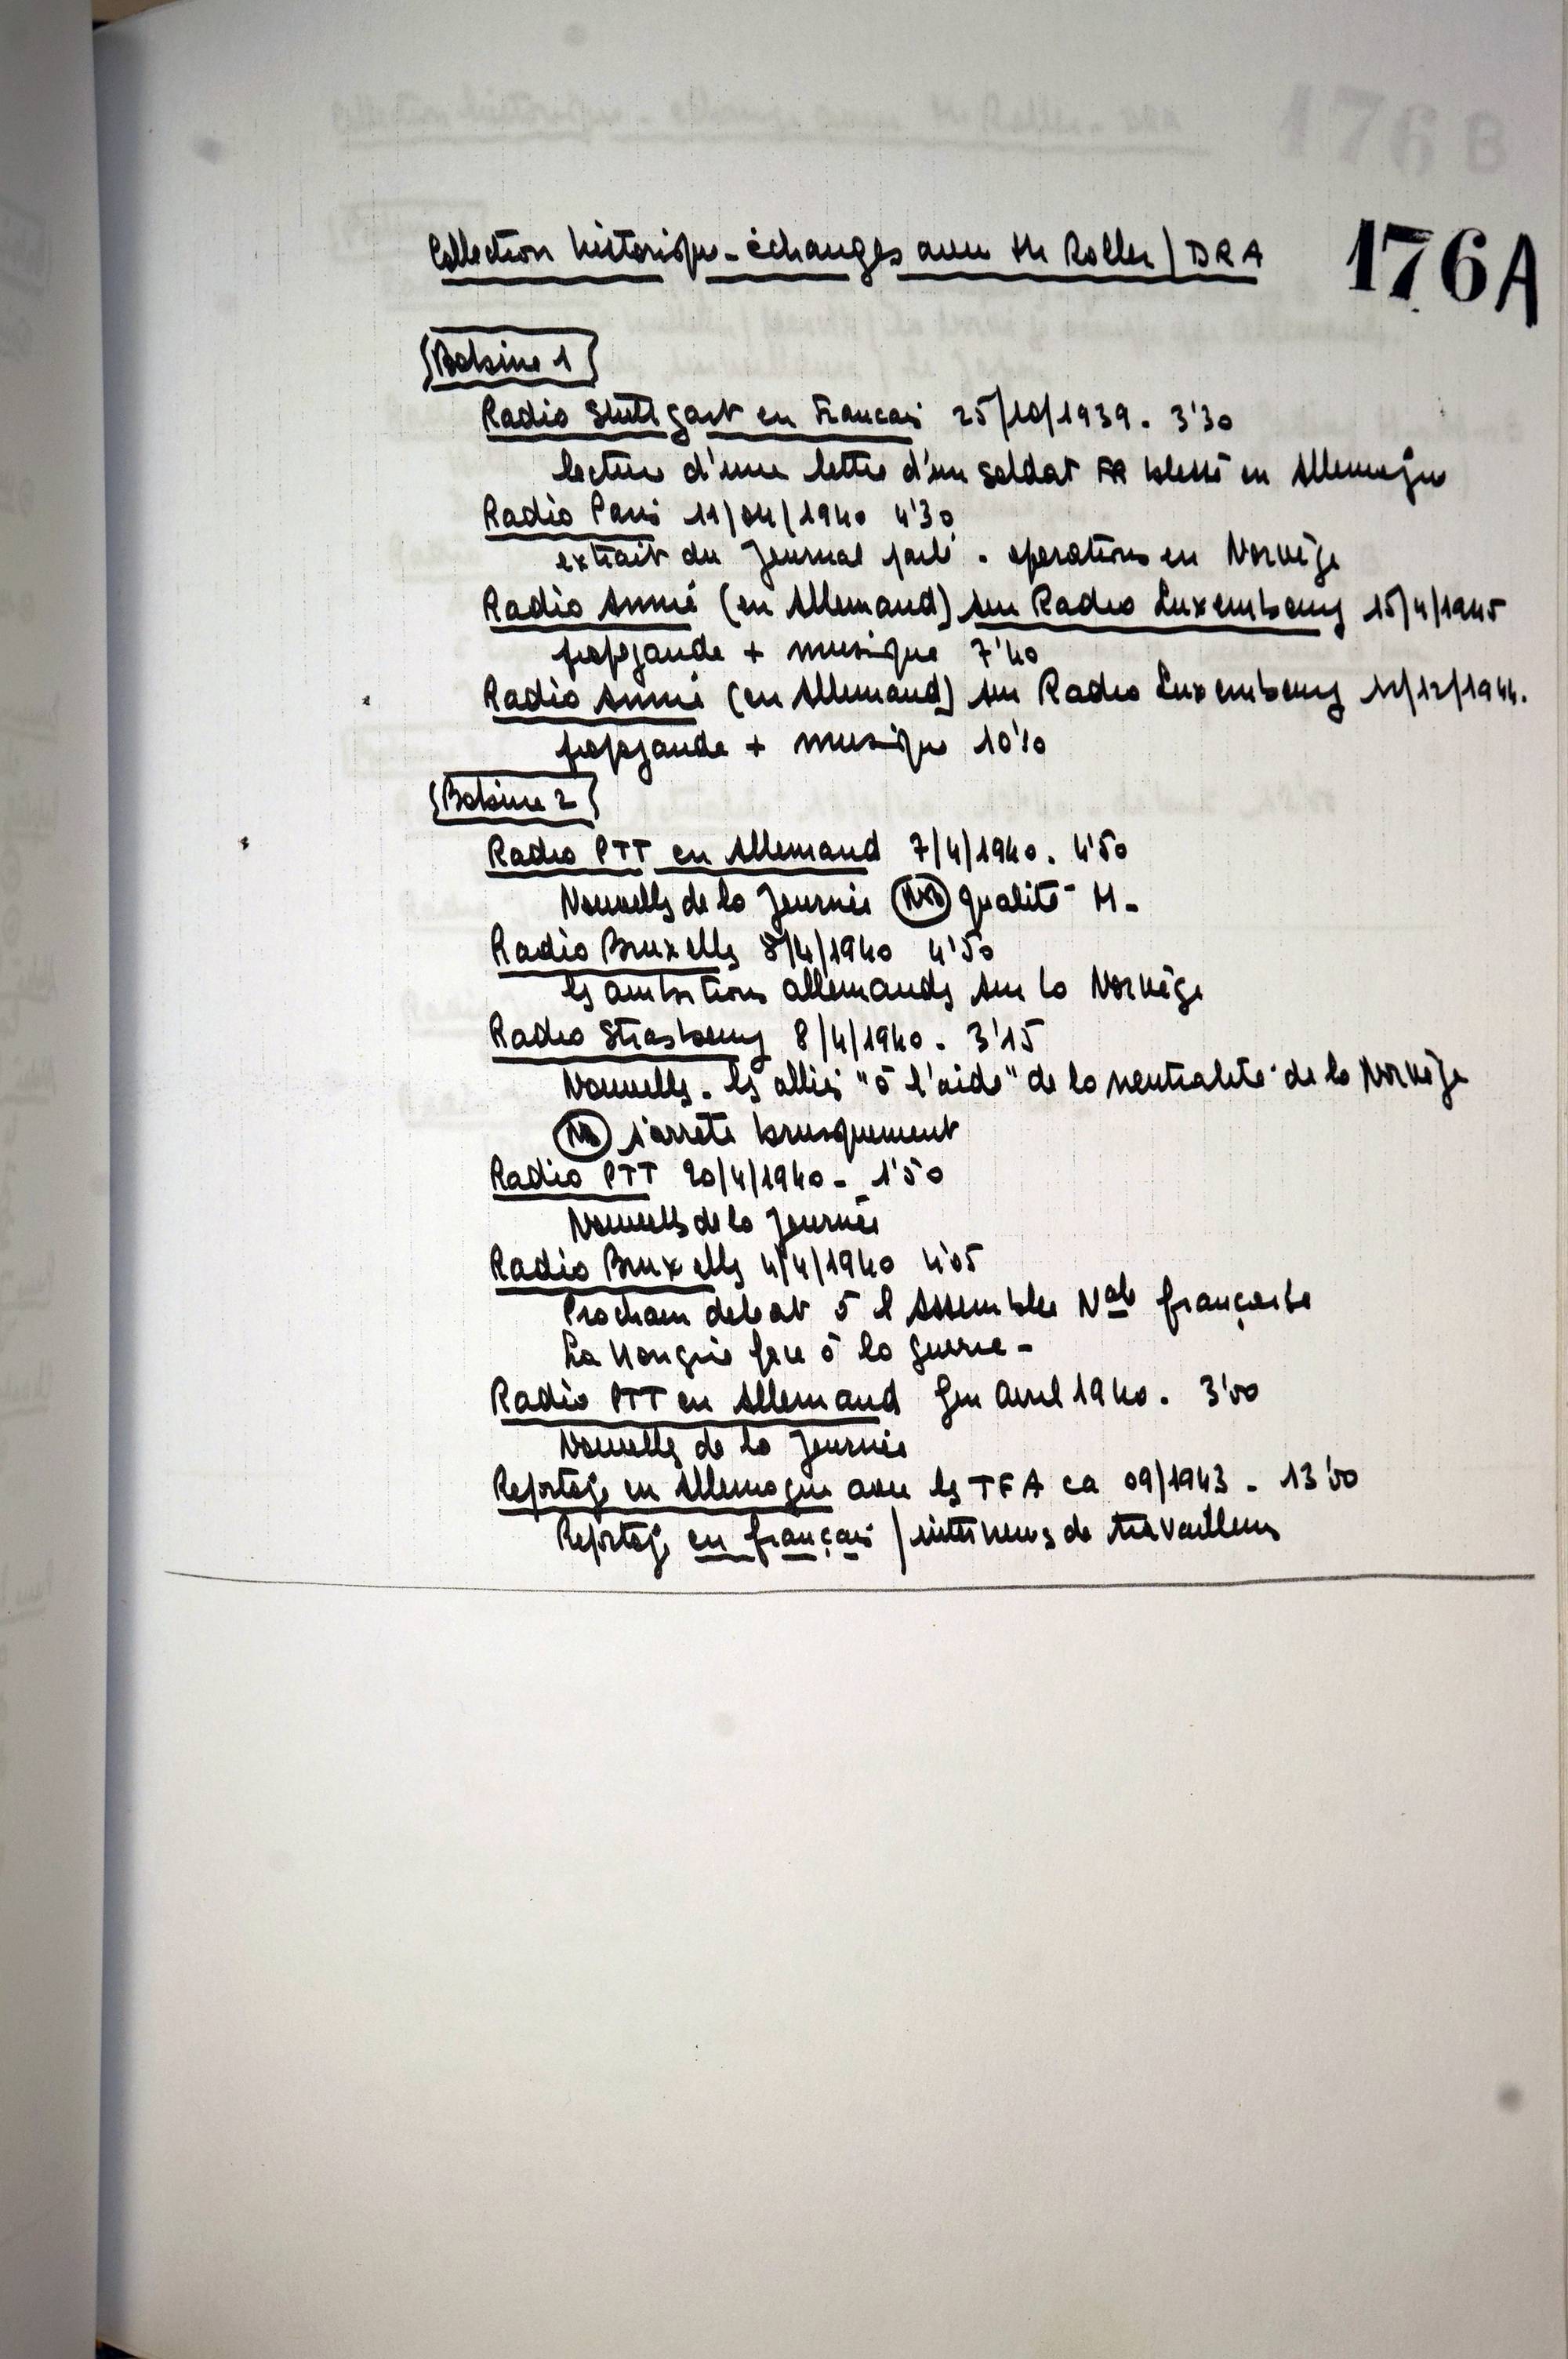 Collection historique - échanges avec Mr Roller / DRA
176A
Bobine 1
Radio Stuttgart en Francais 25/10/1939. 3'30
lecture d'une lettre d'un soldat FR blessé en Allemagne
Radio Paris 11/04/1940 4'30
extrait du Journal parlé. operations en Norvège
Radio Annie (en Allemand) sur Radio Luxembourg 15/4/1945
propagande + musique 7'40
Radio Annie (en Allemand) sur Radio Luxembourg /12/1944.
propagande + musique
Bobine 2
Radio PTT en Allemand 7/4/1940. 4'50
Nouvelles de la Journée qualité M-
Radio Bruxelles 8/4/1940 4'50
les ambitions allemandes sur la Norvège
Radio Strasbourg 8/4/1940. 3'15
Nouvelles. les alliés "à l'aide" de la neutralité de la Norvège
NB s'arrête brusquement
Radio PTT 20/4/1940 - 1'50
Nouvelles de la Journée
Radio Bruxelles 4/4/1940 4'05
Prochain debat à l'Assemblée Nale française
La Hongrie face à la guerre -
Radio PTT en Allemand fin Avril 1940. 3'00
Nouvelles de la Journée
Reportage en Allemagne avec les TFA ca 09/1943 - 13'00
Reportage en français / interviews de travailleurs
176 B